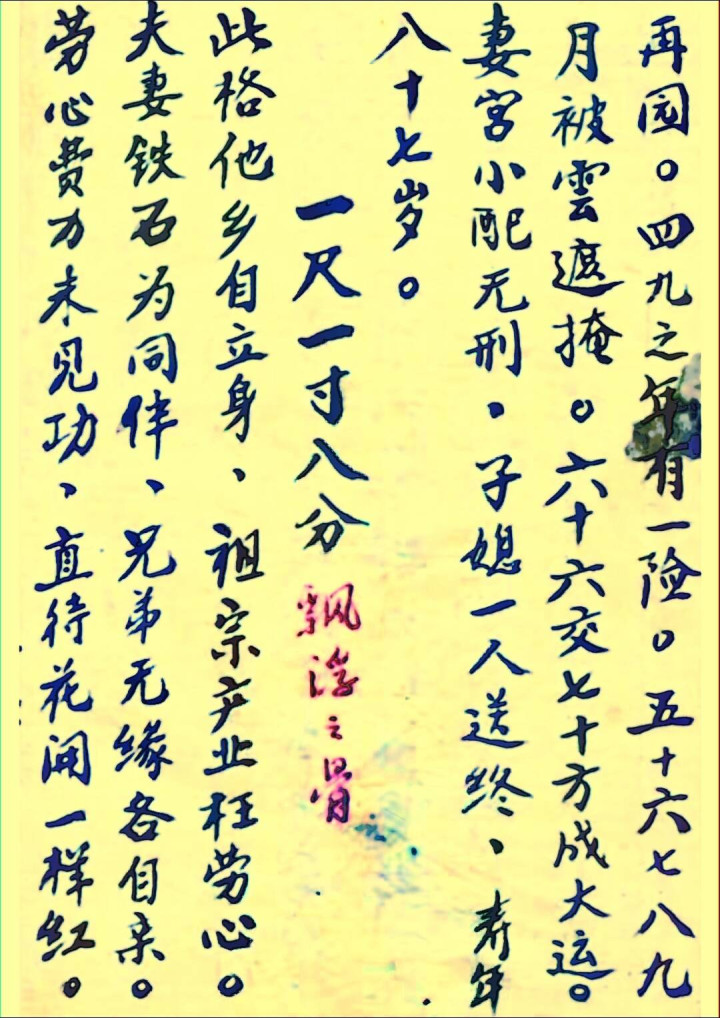 再园。四九之年有一险。五十六七八九
月被雲遮掩。六十六交七十方成大运。
妻宫小配无刑．子媳一人送终、寿年
八十七岁。
一尺一寸八分 飘浮之骨
此格他乡自立身、祖宗产业枉劳心。
夫妻铁石为同伴、兄弟无缘各自亲。
劳心费力未见功、直待花开一样红。